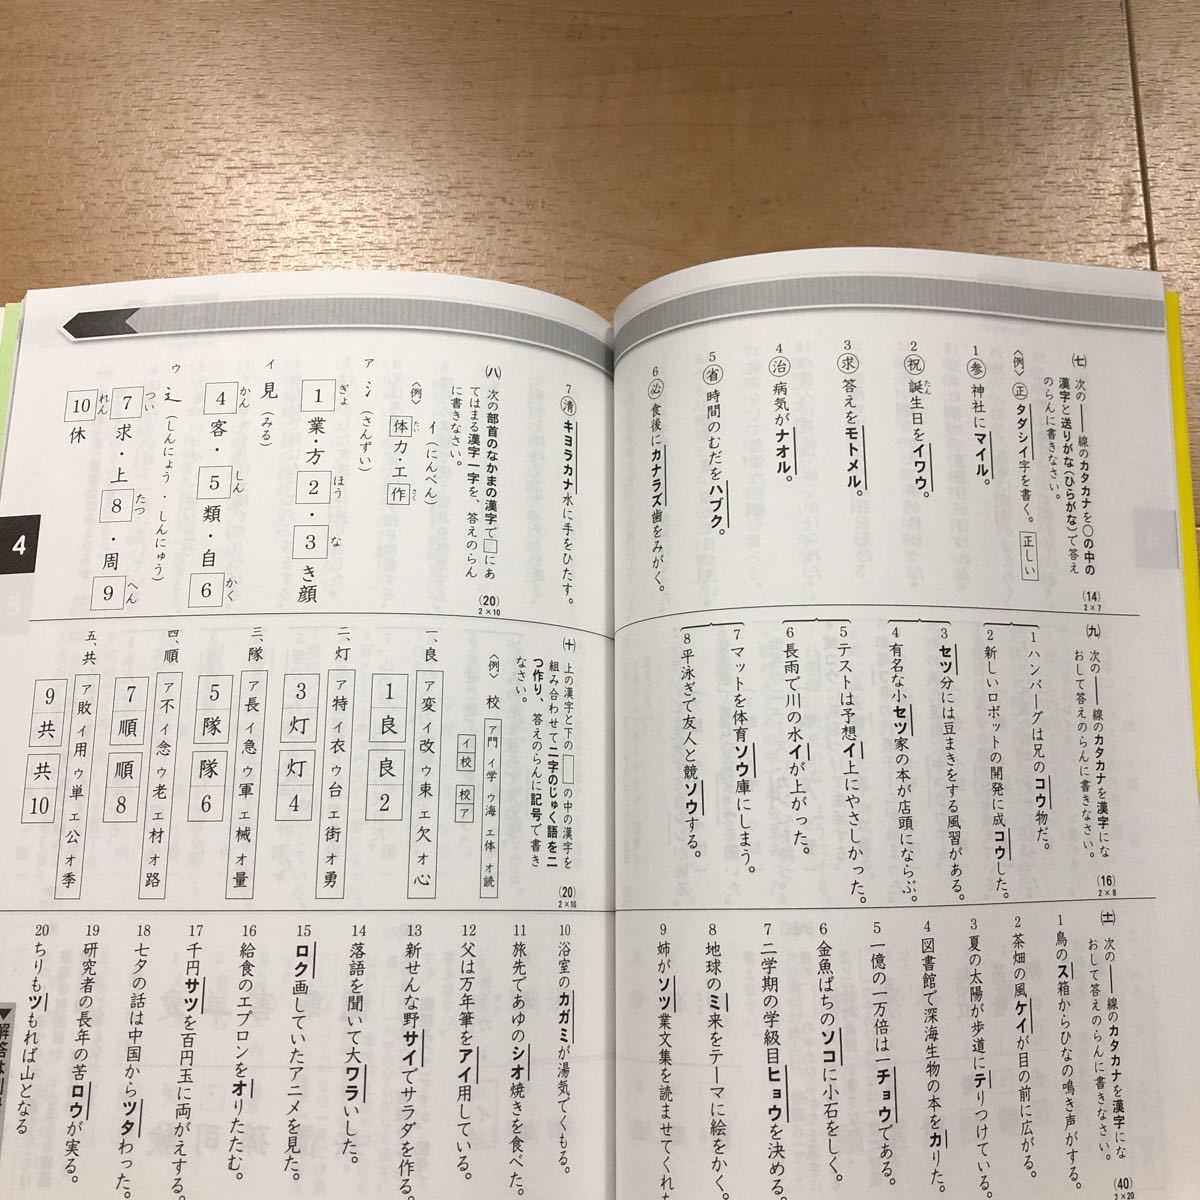 ㈦ 次の――線のカタカナを〇の中の
漢字と送りがな(ひらがな)で答え
のらんに書きなさい。
(14)
2×7
〈例〉 正 タダシイ字を書く。 正しい
1 参 神社にマイル。
2 祝 誕生日をイワウ。
たん
3 求 答えをモトメル。
4 治 病気がナオル。
5 省 時間のむだをハブク。
6 必 食後にカナラズ歯をみがく。
7 清 キヨラカナ水に手をひたす。
㈧ 次の部首のなかまの漢字で□にあ
てはまる漢字一字を、答えのらん
に書きなさい。
(20)
2×10
〈例〉 イ(にんべん)
体力・工作
たい さく
ア 氵(さんずい)
1業・方2・3き顔
ぎょ ほう な
イ 見(みる)
4客・5類・自6
かん しん かく
ウ 辶(しんにょう・しんにゅう)
7求・上8・周9
つい たつ へん
10休
れん
㈨ 次の――線のカタカナを漢字にな
おして答えのらんに書きなさい。
(16)
2×8
1 ハンバーグは兄のコウ物だ。
2 新しいロボットの開発に成コウした。
3 セツ分には豆まきをする風習がある。
4 有名な小セツ家の本が店頭にならぶ。
5 テストは予想イ上にやさしかった。
6 長雨で川の水イが上がった。
7 マットを体育ソウ庫にしまう。
8 平泳ぎで友人と競ソウする。
㈩ 上の漢字と下の□の中の漢字を
組み合わせて二字のじゅく語を二
つ作り、答えのらんに記号で書き
なさい。
(20)
2×10
〈例〉 校 ア門 イ学 ウ海 エ体 オ読
イ校 校ア
一、良 ア変 イ改 ウ束 エ欠 オ心
1良 良2
二、灯 ア特 イ衣 ウ台 エ街 オ勇
3灯 灯4
三、隊 ア長 イ急 ウ軍 エ械 オ量
5隊 隊6
四、順 ア不 イ念 ウ老 エ材 オ路
7順 順8
五、共 ア敗 イ用 ウ単 エ公 オ季
9共 共10
(十一) 次の――線のカタカナを漢字にな
おして答えのらんに書きなさい。
(40)
2×20
1 鳥のス箱からひなの鳴き声がする。
2 茶畑の風ケイが目の前に広がる。
3 夏の太陽が歩道にテりつけている。
4 図書館で深海生物の本をカりた。
5 一億の一万倍は一チョウである。
6 金魚ばちのソコに小石をしく。
7 二学期の学級目ヒョウを決める。
8 地球のミ来をテーマに絵をかく。
9 姉がソツ業文集を読ませてくれた
10 浴室のカガミが湯気でくもる。
11 旅先であゆのシオ焼きを食べた。
12 父は万年筆をアイ用している。
13 新せんな野サイでサラダを作る。
14 落語を聞いて大ワラいした。
15 ロク画していたアニメを見た。
16 給食のエプロンをオりたたむ。
17 千円サツを百円玉に両がえする。
18 七夕の話は中国からツタわった。
19 研究者の長年の苦ロウが実る。
20 ちりもツもれば山となる
4
▼解答は別